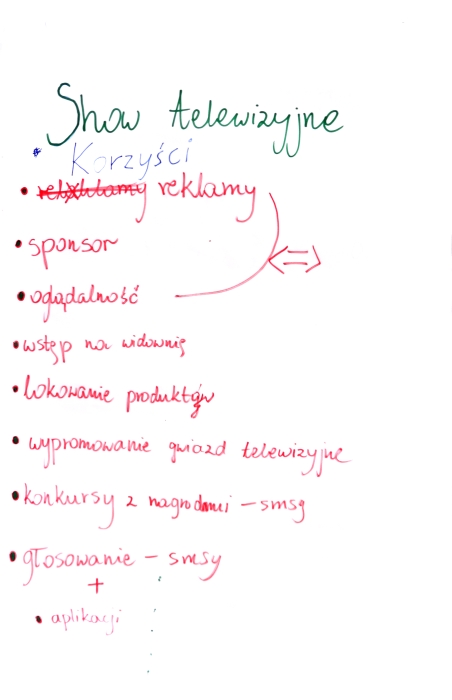 Show telewizyjne
• Korzyści
• reklamy
• sponsor
• oglądalność
• wstęp na widownię
• lokowanie produktów
• wypromowanie gwiazd telewizyjne
• konkursy z nagrodami – smsy
• głosowanie – smsy
+
• aplikacji